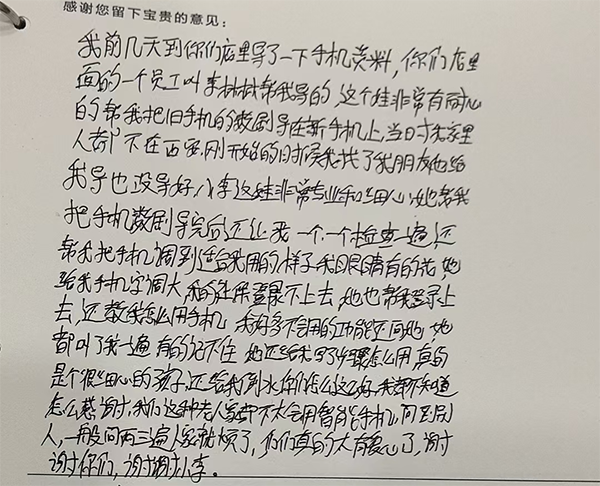 感谢您留下宝贵的意见：
我前几天到你们店里导了一下手机资料，你们店里
面的一个员工叫李林林帮我导的，这个娃非常有耐心
的帮我把旧手机的数剧导在新手机上，当日寸我家里
人都不在西安，刚开始的时候我找了我朋友她给
我导也没导好，小李这娃非常专业和细心，她帮我
把手机数剧导完后还让我一个一个检查一遍，还
帮我把手机调到适合我用的样子，我眼睛有的花，她
给我手机字调大，我的医保登录不上去，她也帮我登录上
去，还教我怎么用手机，我好多不会用的功能还问她，她
都叫了我一遍，有的记不住，她还给我写了步骤怎么用，真的
是个很细心的孩子，还给我倒水，你们怎么这么好，我都不知道
怎么感谢，我们这种老人家都不太会用智能手机，问至别
人，一般问两三遍人家就烦了，你们真的太有爱心了，谢
谢你们，谢谢小李。